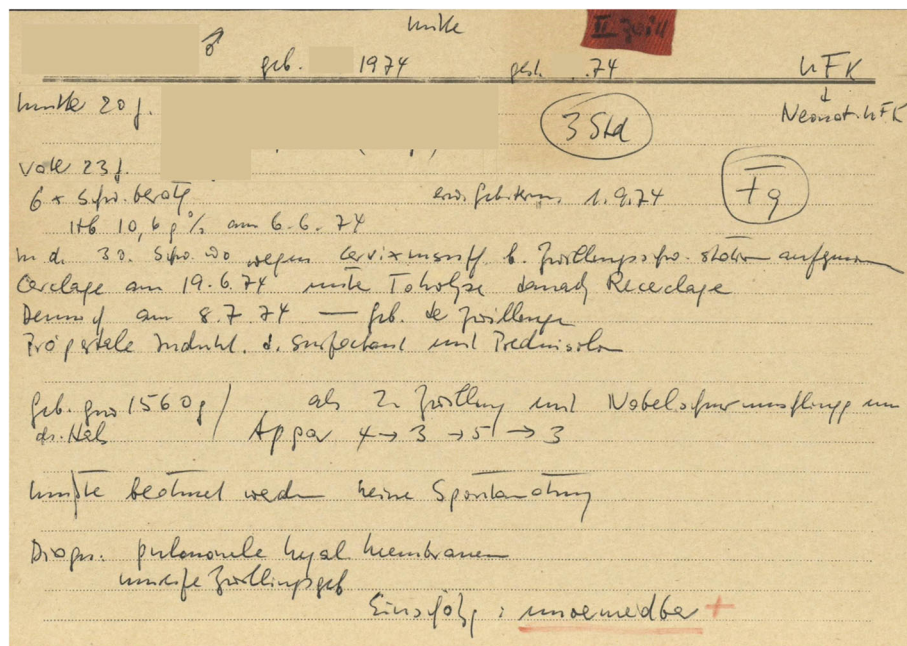 II. Zwill
♂
geb. 1974 gest. .74 UFK
↓
Neonat. UFK
Mutter 20 J.
3 Std
Vater 23 J.
6 x Schw. beratg 1.9.74
Hb 10,6 g% am 6.6.74
In d. 30. Schw. Wo wegen Cervixinsuff. b. Zwillingsschw. stationär aufgenommen
Cerclage am 19.6.74 unter Tokolyse danach Recerclage
Dennoch am 8.7.74 — Geb. der Zwillinge
Präpartale Indukt. d. Surfactant mit Prednisolon
Geb. gew 1560 g / als 2. Zwilling mit Nabelschnurumschlingg um
ds. Hals Apgar 4 → 3 → 5 → 3
Mußte beatmet werden keine Spontanatmung
Diagn. pulmonale hyal. Membranen
unreife Zwillingsgeb
Einschätzg : unvermeidbar +